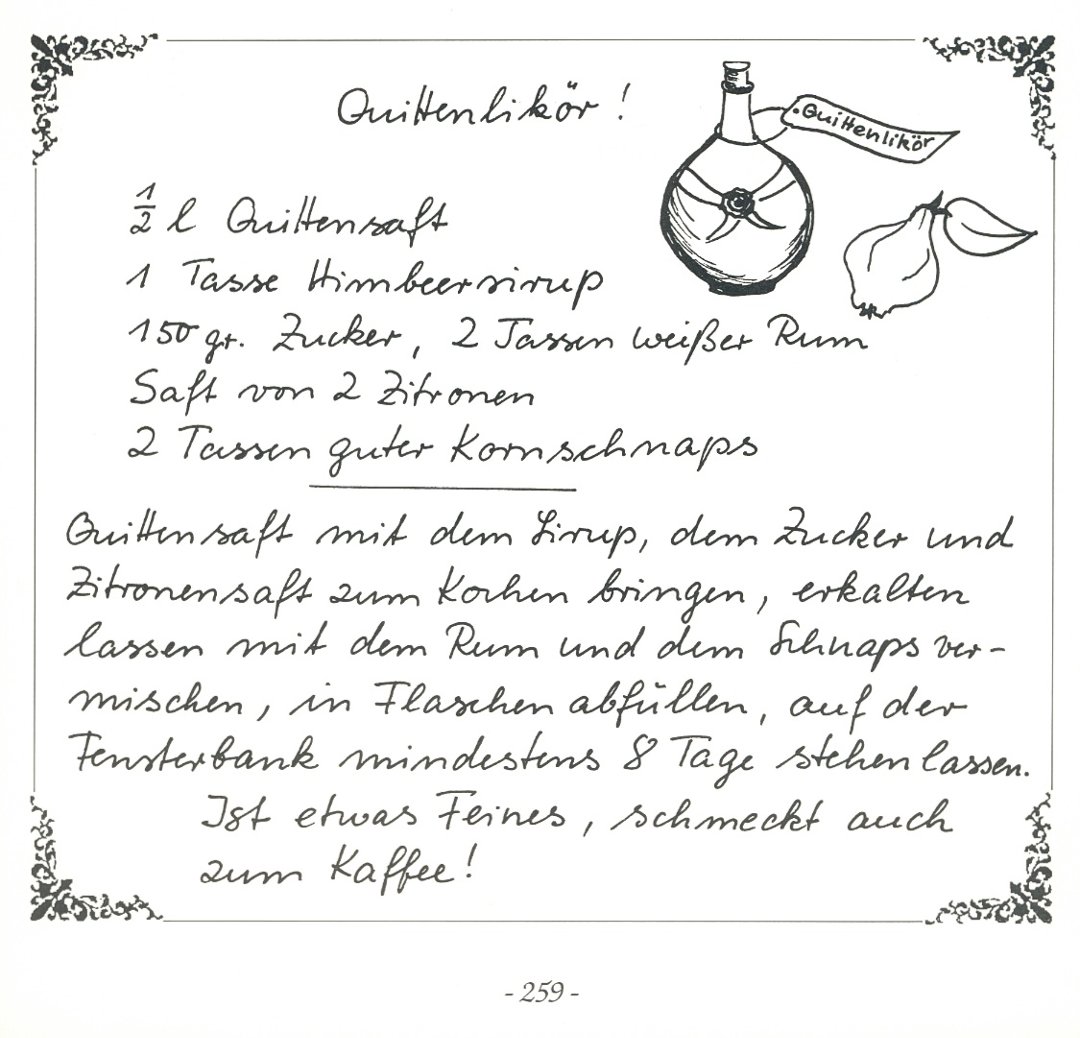 Quittenlikör!
Quittenlikör
1/2 l Quittensaft
1 Tasse Himbeersirup
150 gr. Zucker, 2 Tassen weißer Rum
Saft von 2 Zitronen
2 Tassen guter Kornschnaps
Quittensaft mit dem Sirup, dem Zucker und
Zitronensaft zum Kochen bringen, erkalten
lassen mit dem Rum und dem Schnaps ver-
mischen, in Flaschen abfüllen, auf der
Fensterbank mindestens 8 Tage stehen lassen.
Ist etwas Feines, schmeckt auch
zum Kaffee!
- 259 -